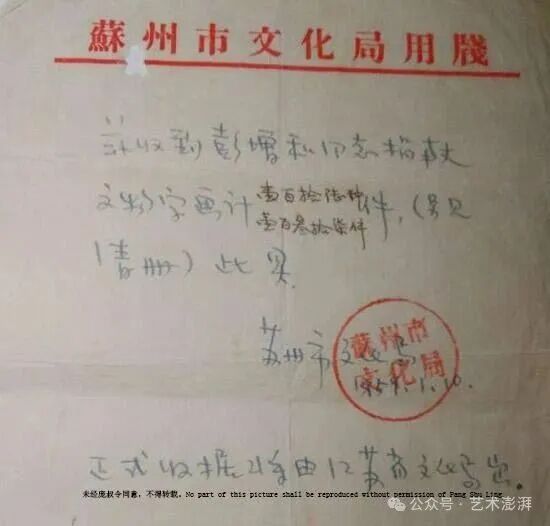 蘇州市文化局用牋
兹收到彭增和同志捐献
文物字画计壹百拾陆种件,(另见
壹百叁拾柒件
清册)此具
苏州市文化局
1959.1.10.
蘇州市
文化局
正式收据将由江苏省文化局出。
未经庞叔令同意,不得转载。No part of this picture shall be reproduced without permission of Pang Shu Ling
公众号·艺术澎湃